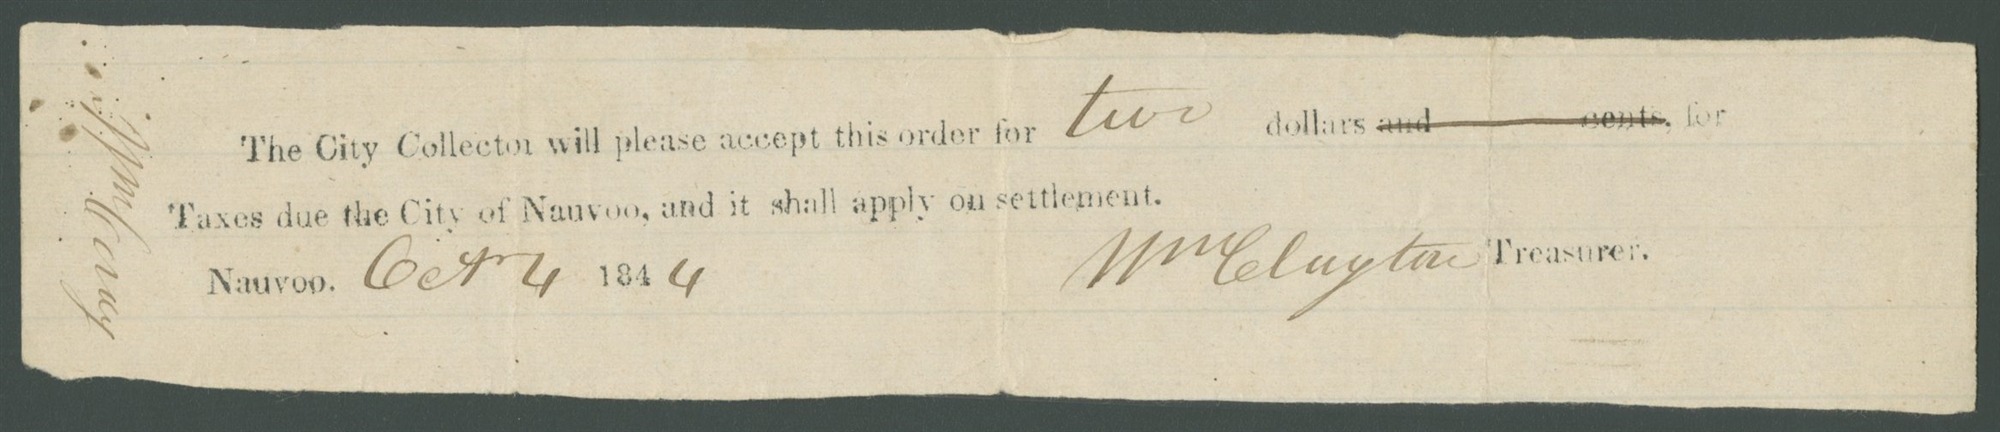 The City Collector will please accept this order for two dollars and cents, for
Taxes due the City of Nauvoo, and it shall apply on settlement.
Nauvoo. Octr 4 1844 Wm Clayton Treasurer.
Wm